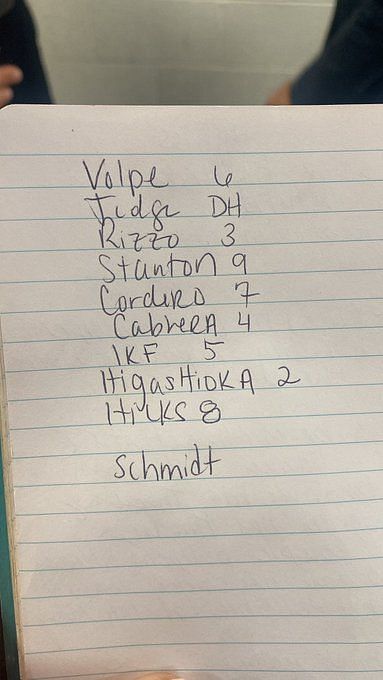 Volpe 6
Judge DH
Rizzo 3
Stanton 9
Cordero 7
Cabrera 4
IKF 5
Higashioka 2
Hicks 8
Schmidt